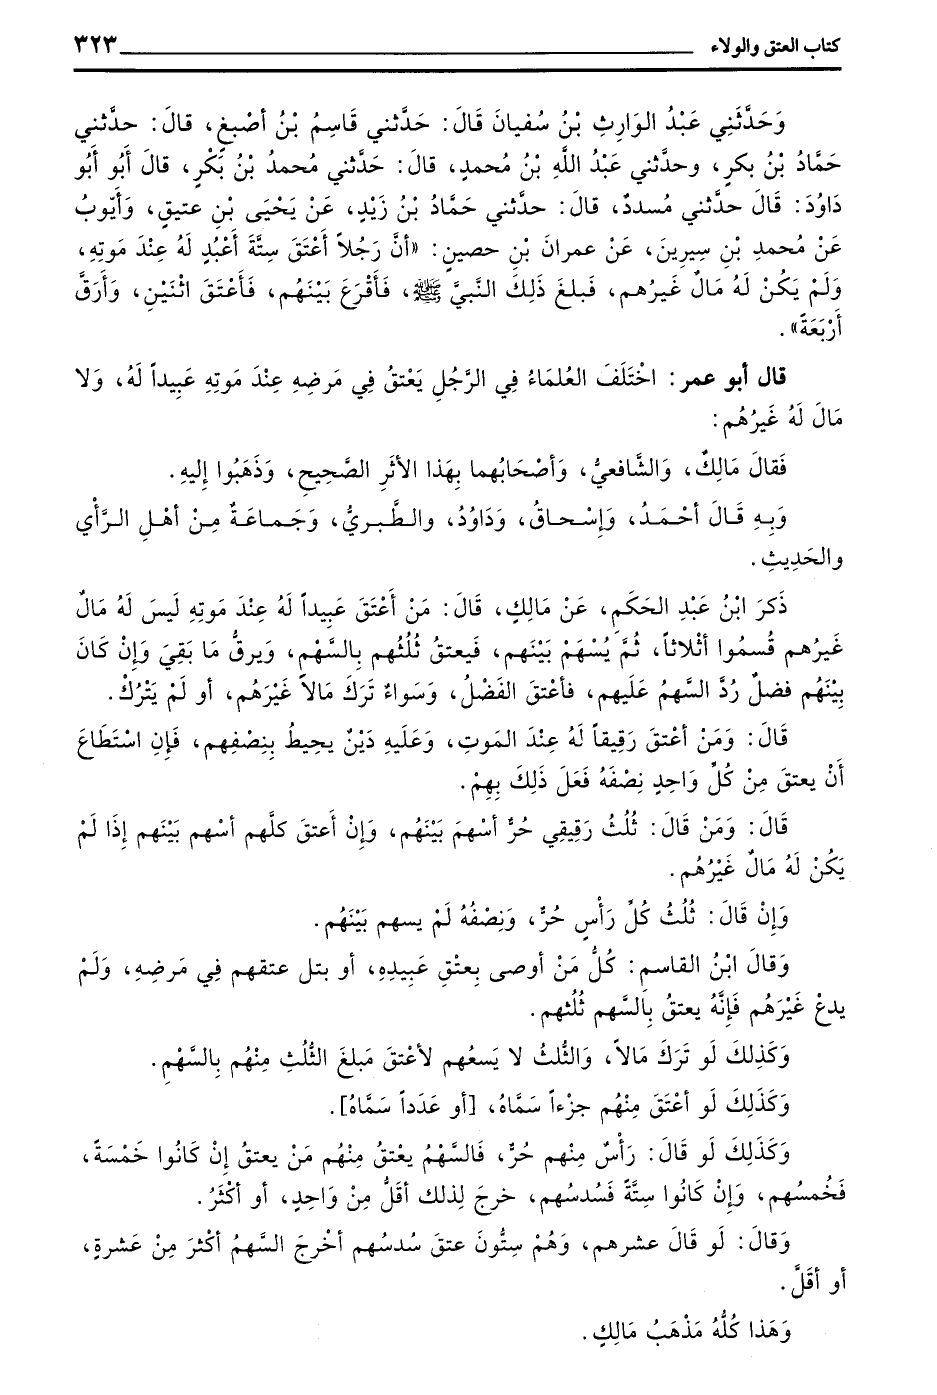 كتاب العتق والولاء ٣٢٣
وَحَدَّثَنِي عَبْدُ الوَارِثِ بْنُ سُفيانَ قَالَ: حَدَّثني قَاسِمُ بْنُ أصْبغٍ، قالَ: حدَّثني
حَمَّادُ بْنُ بكرٍ، وحدَّثني عَبْدُ اللَّهِ بْنُ مُحمدٍ، قالَ: حَدَّثني مُحمدُ بْنُ بَكْرٍ، قالَ أَبُو أَبُو
دَاوُدَ: قَالَ حدَّثني مُسددٌ، قالَ: حدثني حَمَّادُ بْنُ زَيْدٍ، عَنْ يَحْيَى بْنِ عتيقٍ، وَأَيّوبُ
عَنْ مُحمدِ بْنِ سِيرِينَ، عَنْ عمرانَ بْنِ حصينٍ: «أنَّ رَجُلاً أَعْتَقَ سِتَّةَ أَعْبُدٍ لَهُ عِنْدَ مَوتِهِ،
وَلَمْ يَكُنْ لَهُ مَالٌ غَيرُهم، فَبلغَ ذَلِكَ النَّبيَّ ﷺ، فَأَقْرَعَ بَيْنَهُم، فَأَعْتَقَ اثْنَيْنِ، وَأَرَقَّ
أَرْبَعَةً».
قال أبو عمر: اخْتَلَفَ العُلمَاءُ فِي الرَّجُلِ يَعْتقُ فِي مَرضِهِ عِنْدَ مَوتِهِ عَبِيداً لَهُ، وَلا
مَالَ لَهُ غَيرُهُم:
فَقالَ مَالِكٌ، وَالشَّافعيُّ، وَأصْحَابُهما بِهَذا الأثَرِ الصَّحِيحِ، وَذَهَبُوا إِليهِ.
وَبِهِ قَالَ أحْمَدُ، وَإِسْحاقُ، وَدَاوُدُ، والطَّبريُّ، وَجَماعَةٌ مِنْ أهْلِ الرَّأْي
والحَدِيثِ.
ذَكرَ ابْنُ عَبْدِ الحَكَمِ، عَنْ مَالِكٍ، قَالَ: مَنْ أَعْتَقَ عَبِيداً لَهُ عِنْدَ مَوتِهِ لَيسَ لَهُ مَالٌ
غَيرُهم قُسمُوا أثْلاثاً، ثُمَّ يُسْهَمْ بَيْنَهم، فَيعتقُ ثُلُثُهم بِالسَّهْمِ، وَيرقُّ مَا بَقِيَ وَإِنْ كَانَ
بِيْنَهُم فضلٌ رُدَّ السَّهمُ عَلَيهم، فأعْتقَ الفَضْلُ، وَسَواءٌ تَرَكَ مَالاً غَيْرَهُم، أو لَمْ يَتْرُكْ.
قَالَ: وَمَنْ أعْتقَ رَقِيقاً لَهُ عِنْدَ المَوتِ، وَعَلَيهِ دَيْنٌ يحِيطُ بِنِصْفِهم، فَإِنِ اسْتَطَاعَ
أَنْ يعتقَ مِنْ كُلِّ وَاحِدٍ نِصْفَهُ فَعَلَ ذَلِكَ بِهِمْ.
قَالَ: وَمَنْ قَالَ: ثُلُثُ رَقِيقِي حُرٌّ أسْهمَ بَيْنَهُم، وَإِنْ أَعتقَ كلَّهم أسْهم بَيْنَهم إِذَا لَمْ
يَكُنْ لَهُ مَالٌ غَيْرُهُم.
وَإِنْ قَالَ: ثُلُثُ كُلِّ رَأْسٍ حُرٌّ، وَنِصْفُهُ لَمْ يسهم بَيْنَهُم.
وَقالَ ابْنُ القاسمِ: كُلُّ مَنْ أوصى بِعتْقِ عَبِيدِهِ، أو بتل عتقهم فِي مَرضِهِ، وَلَمْ
يدعْ غَيْرَهُم فَإِنَّهُ يعتقُ بِالسَّهمِ ثُلُثهم.
وَكَذِلِكَ لَو تَرَكَ مَالاً، وَالثّلثُ لا يَسعُهم لأعْتقَ مَبلغَ الثُّلُثِ مِنْهُم بِالسَّهْمِ.
وَكَذَلِكَ لَو أعْتَقَ مِنْهُم جزْءاً سَمَّاهُ، [أو عَدَداً سَمَّاهُ].
وَكَذَلِكَ لَو قَالَ: رَأْسٌ مِنْهم حُرٌّ، فَالسَّهْمُ يعْتقُ مِنْهُم مَنْ يعتقُ إِنْ كَانُوا خَمْسَةً،
فَخُمسُهم، وَإِنْ كَانُوا ستَّةً فَسُدسُهم، خرجَ لِذلك أقَلُّ مِنْ وَاحِدٍ، أو أكْثَرُ.
وَقالَ: لَو قَالَ عشرهم، وَهُمْ سِتُّونَ عتقَ سُدسُهم أخْرجَ السهمُ أكْثرَ مِنْ عَشرةٍ،
أو أقَلَّ.
وَهَذا كُلُّهُ مَذْهَبُ مَالِكٍ.